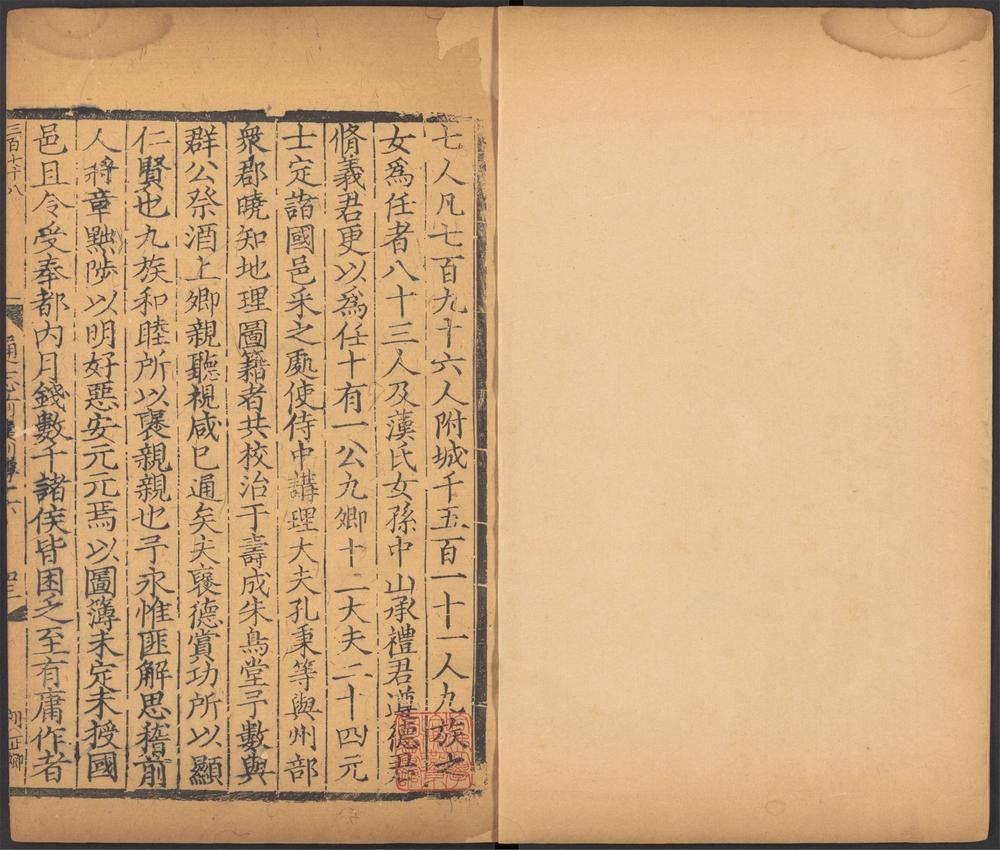 七人凡七百九十六人附城千五百一十一人九族之
女爲任者八十三人及漢氏女孫中山承禮君遵德君
脩義君更以爲任十有一公九卿十二大夫二十四元
士定諸國邑采之處使侍中講理大夫孔秉等與州部
衆郡曉知地理圖籍者共校治于壽成朱鳥堂予數與
群公祭酒上卿親聽視咸已通矣夫襃德賞功所以顯
仁賢也九族和睦所以襃親親也予永惟匪解思稽前
人將章黜陟以明好惡安元元焉以圖簿未定未授國
邑且令受奉都內月錢數千諸侯皆困乏至有庸作者
三百七十八